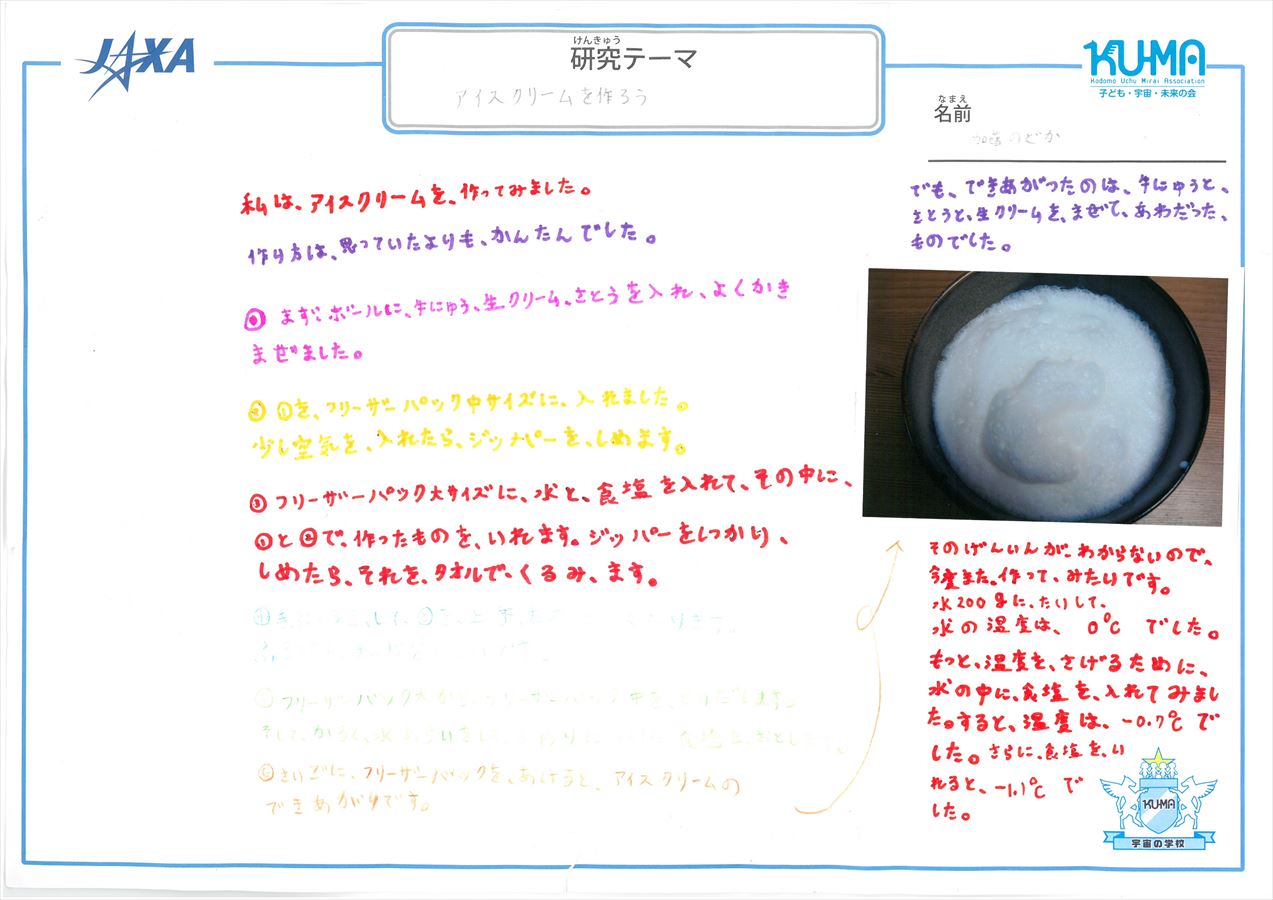 JAXA
けんきゅう
研究テーマ
アイスクリームを作ろう
KU-MA
Kodomo Uchu Mirai Association
子ども・宇宙・未来の会
なまえ
名前
加藤のどか
私は、アイスクリームを、作ってみました。
作り方は、思っていたよりも、かんたんでした。
① まず、ボールに、牛にゅう、生クリーム、さとうを入れ、よくかき
まぜました。
② ①を、フリーザーパック中サイズに、入れました。
少し空気を、入れたら、ジッパーを、しめます。
③ フリーザーパック大サイズに、氷と、食塩を入れて、その中に、
①と②で、作ったものを、いれます。ジッパーをしっかり、
しめたら、それを、タオルで、くるみ、ます。
フリーザーパック大から、フリーザーパック中を、とりだします。
⑥ さいごに、フリーザーパックを、あけると、アイスクリームの
できあがりです。
でも、できあがったのは、牛にゅうと、
さとうと、生クリームを、まぜて、あわだった、
ものでした。
そのげんいんが、わからないので、
今度また。作って、みたいです。
氷200gに、たいして、
氷の温度は、0℃でした。
もっと、温度を、さげるために、
氷の中に、食塩を、入れてみまし
た。すると、温度は、-0.7℃で
した。さらに、食塩を、い
れると、-1.1℃で
した。
KU-MA
宇宙の学校